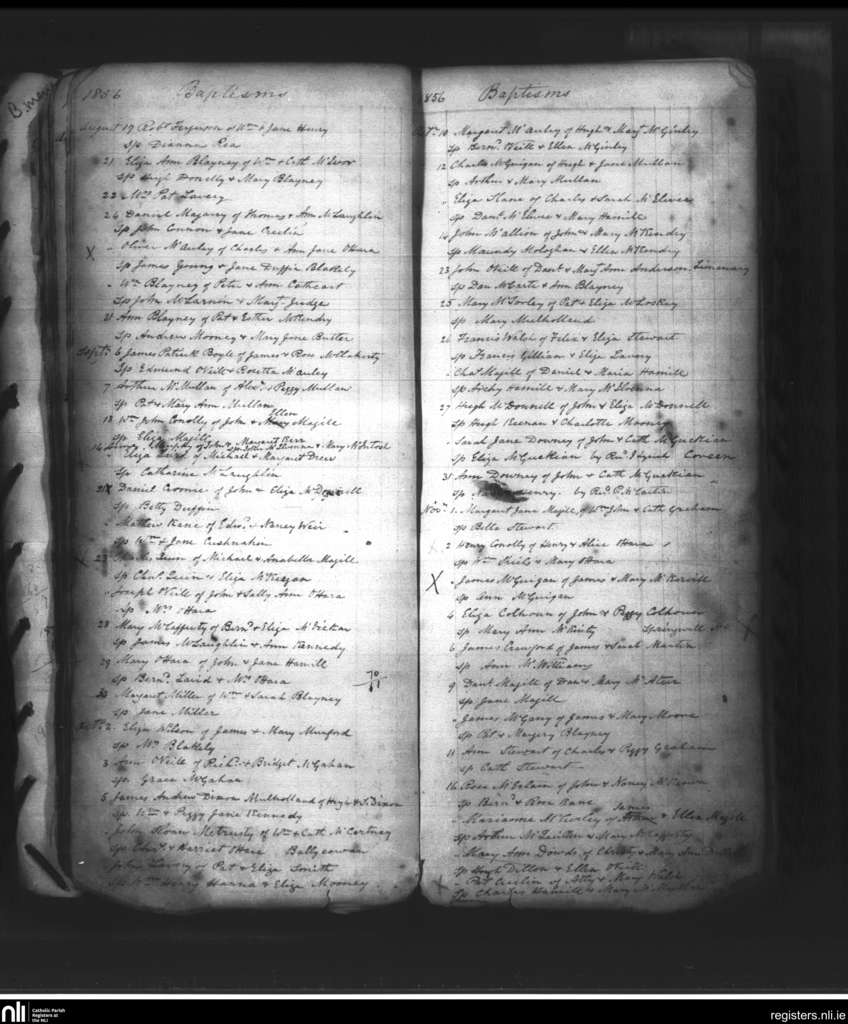 B
1856 Baptisms
August 19 Robt Ferguson of Wm & Jane Henry
Sp Dianna Rea
21 Eliza Ann Blayney of Wm & Cath McIvor
Sp Hugh Donelly & Mary Blayney
22 Pat Lavery
26 Daniel Magarey of Thomas & Ann McLaughlin
Sp John Connon & Jane Creelin
X " Oliver McAuley of Charles & Ann Jane OHara
Sp James Young & Jane Duffin Blakely
" Wm Blayney of Peter & Ann Cathcart
Sp John McLarnin & Margt Judge
31 Ann Blayney of Pat & Esther McKendry
Sp Andrew Mooney & Mary Jane Butler
Septr 6 James Patrick Boyle of James & Rose McClaherty
Sp Edmund ONeill & Rosetta McAuley
7 Arthur McMullan of Alexr & Peggy Mullan
Sp Pat & Mary Ann Mullan
13 Wm John Conolly of John & Mary Ellen Magill
Sp Eliza Magill
14 Murphy of John & Margaret Kerr
of Michael & Margaret Drew
Sp Catharine McLaughlin
21 X Daniel Cromie of John & Eliza McDonnell
Sp Betty Duffin
" Mathew Kane of Edwd & Nancy Weir
Sp Wm & Jane Cushnahan
Quin of Michael & Anabella Magill
Sp Chas Quin & Eliza McKeegan
" Joseph ONeill of John & Sally Ann OHara
Sp Ms OHara
28 Mary McCafferty of Bernd & Eliza McVickar
Sp James McLaughlin & Ann Kennedy
29 Mary OHara of John & Jane Hamill
Sp Bernd Laird & Ms OHara
70/11
30 Margaret Miller of Wm & Sarah Blayney
Sp Jane Miller
Octr 2 Eliza Wilson of James & Mary Munford
Sp Ms Blakely
3 Ann ONeill of Richd & Bridget McGahan
Sp Grace McGahan
5 James Andrew Dixon Mulholland of Hugh & S. Dixon
Sp Wm & Peggy Jane Kennedy
" John Roan McTrusty of Wm & Cath McCartney
Sp Edwd & Harriet OHara Ballycowan
John Lavery of Pat & Eliza Smith
Sp Wm Henry Hanna & Eliza Mooney
1856 Baptisms
Octr 10 Margaret McAuley of Hugh & Margt McGinley
Sp Bernd ONeill & Ellen McGinley
12 Charles McGuigan of Hugh & Jane Mullan
Sp Arthur & Mary Mullan
" Eliza Kane of Charles & Sarah McElivee
Sp Danl McElwee & Mary Hamill
14 John McAllion of John & Mary McKendry
Sp Maundy Mologhan & Ellen McKendry
23 John ONeill of Danl & Margt Ann Anderson Limenary
Sp Dan McCarte & Ann Blayney
25 Mary McTorley of Pat & Eliza McLoskey
Sp Mary Mulholland
26 Francis Walsh of Felix & Eliza Stewart
Sp Francis Gillian & Eliza Lavery
" Chas Magill of Daniel & Maria Hamill
Sp Archy Hamill & Mary McIlvenna
27 Hugh McDonnell of John & Eliza McDonnell
Sp Hugh Keenan & Charlotte Mooney
" Sarah Jane Downey of John & Cath McGuckian
Sp Eliza McGuckian by Revd J Lynch Coreen
31 Ann Downey of John & Cath McGuckian "
Sp Henry. by Revd P. McCartan
Novr 1. Margaret Jane Magill of Wm John & Cath Graham
Sp Bella Stewart
2 Henry Conolly of Henry & Alice OHara
Sp Wm Neils & Mary OHara
X " James McGuigan of James & Mary McKervill
Sp Ann McGuigan
4 Eliza Colhoun of John & Peggy Colhoun
Sp Mary Ann McKinty Springwell
6 James Crawford of James & Sarah Martin
Sp Ann McWilliams
9 Danl Magill of Dan & Mary McAteer
Sp Jane Magill
" James McGarry of James & Mary Moore
Sp Pat & Margery Blayney
11 Ann Stewart of Charles & Peggy Graham
Sp Cath Stewart
16 Rose McErlane of John & Nancy
Sp Bernd & Rose Kane
" Marianne McTorley of James & Ellen Magill
Sp Arthur McQuillan & Mary McCafferty
" Mary Ann Dowds of Christy & Mary Ann
Sp Hugh Dillon & Ellen ONeill
" Pat Creelin of Atty & Mary Walsh
Sp Charles Hamill & Mary
nli
Catholic Parish
Registers at
the NLI
registers.nli.ie